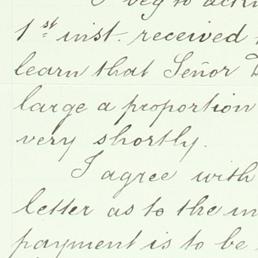 I beg to ackn
1st inst. received
learn that Señor D
large a proportion
very shortly.
I agree with
letter as to the m
payment is to be